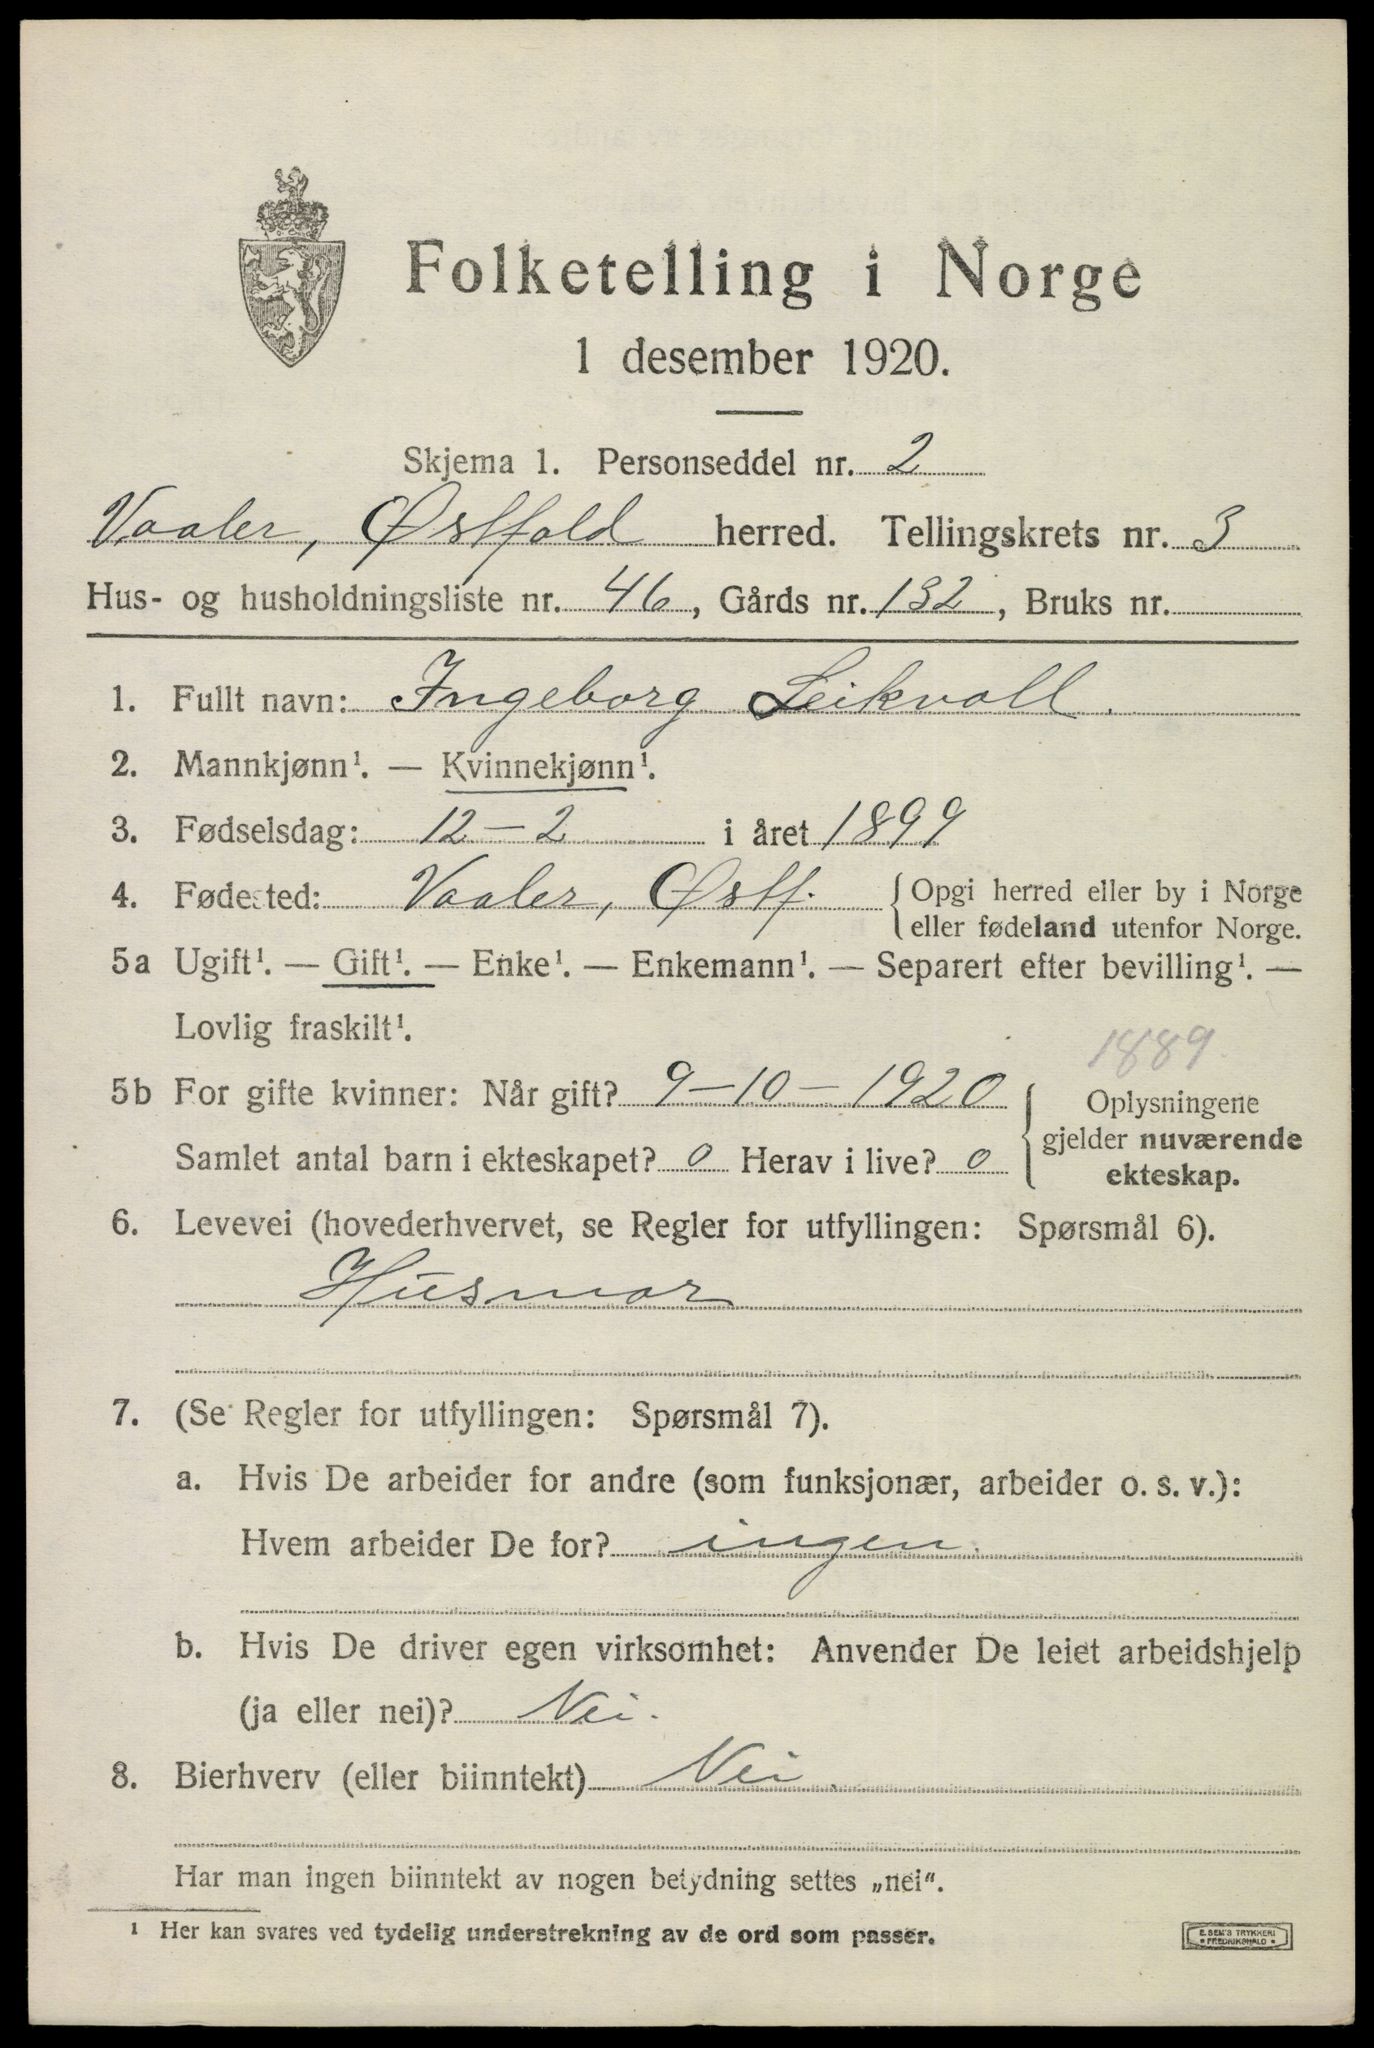 Folketelling i Norge
1 desember 1920.
Skjema 1. Personseddel nr. 2
Vaaler, Østfold herred. Tellingskrets nr. 3
Hus- og husholdningsliste nr. 46, Gårds nr. 132, Bruks nr.
1. Fullt navn: Ingeborg Leikvoll.
2. Mannkjønn¹. — Kvinnekjønn¹.
3. Fødselsdag: 12-2 i året 1899
4. Fødested: Vaaler, Østf. { Opgi herred eller by i Norge
eller fødeland utenfor Norge.
5a Ugift¹. — Gift¹. — Enke¹. — Enkemann¹. — Separert efter bevilling¹. —
Lovlig fraskilt¹.
1889.
5b For gifte kvinner: Når gift? 9-10-1920 { Oplysningene
gjelder nuværende
Samlet antal barn i ekteskapet? 0 Herav i live? 0
ekteskap.
6. Levevei (hovederhvervet, se Regler for utfyllingen: Spørsmål 6).
Husmor
7. (Se Regler for utfyllingen: Spørsmål 7).
a. Hvis De arbeider for andre (som funksjonær, arbeider o. s. v.):
Hvem arbeider De for? ingen.
b. Hvis De driver egen virksomhet: Anvender De leiet arbeidshjelp
(ja eller nei)? Nei.
8. Bierhverv (eller biinntekt) Nei.
Har man ingen biinntekt av nogen betydning settes „nei“.
¹ Her kan svares ved tydelig understrekning av de ord som passer.
E. SEM'S TRYKKERI
• FREDRIKSHALD •